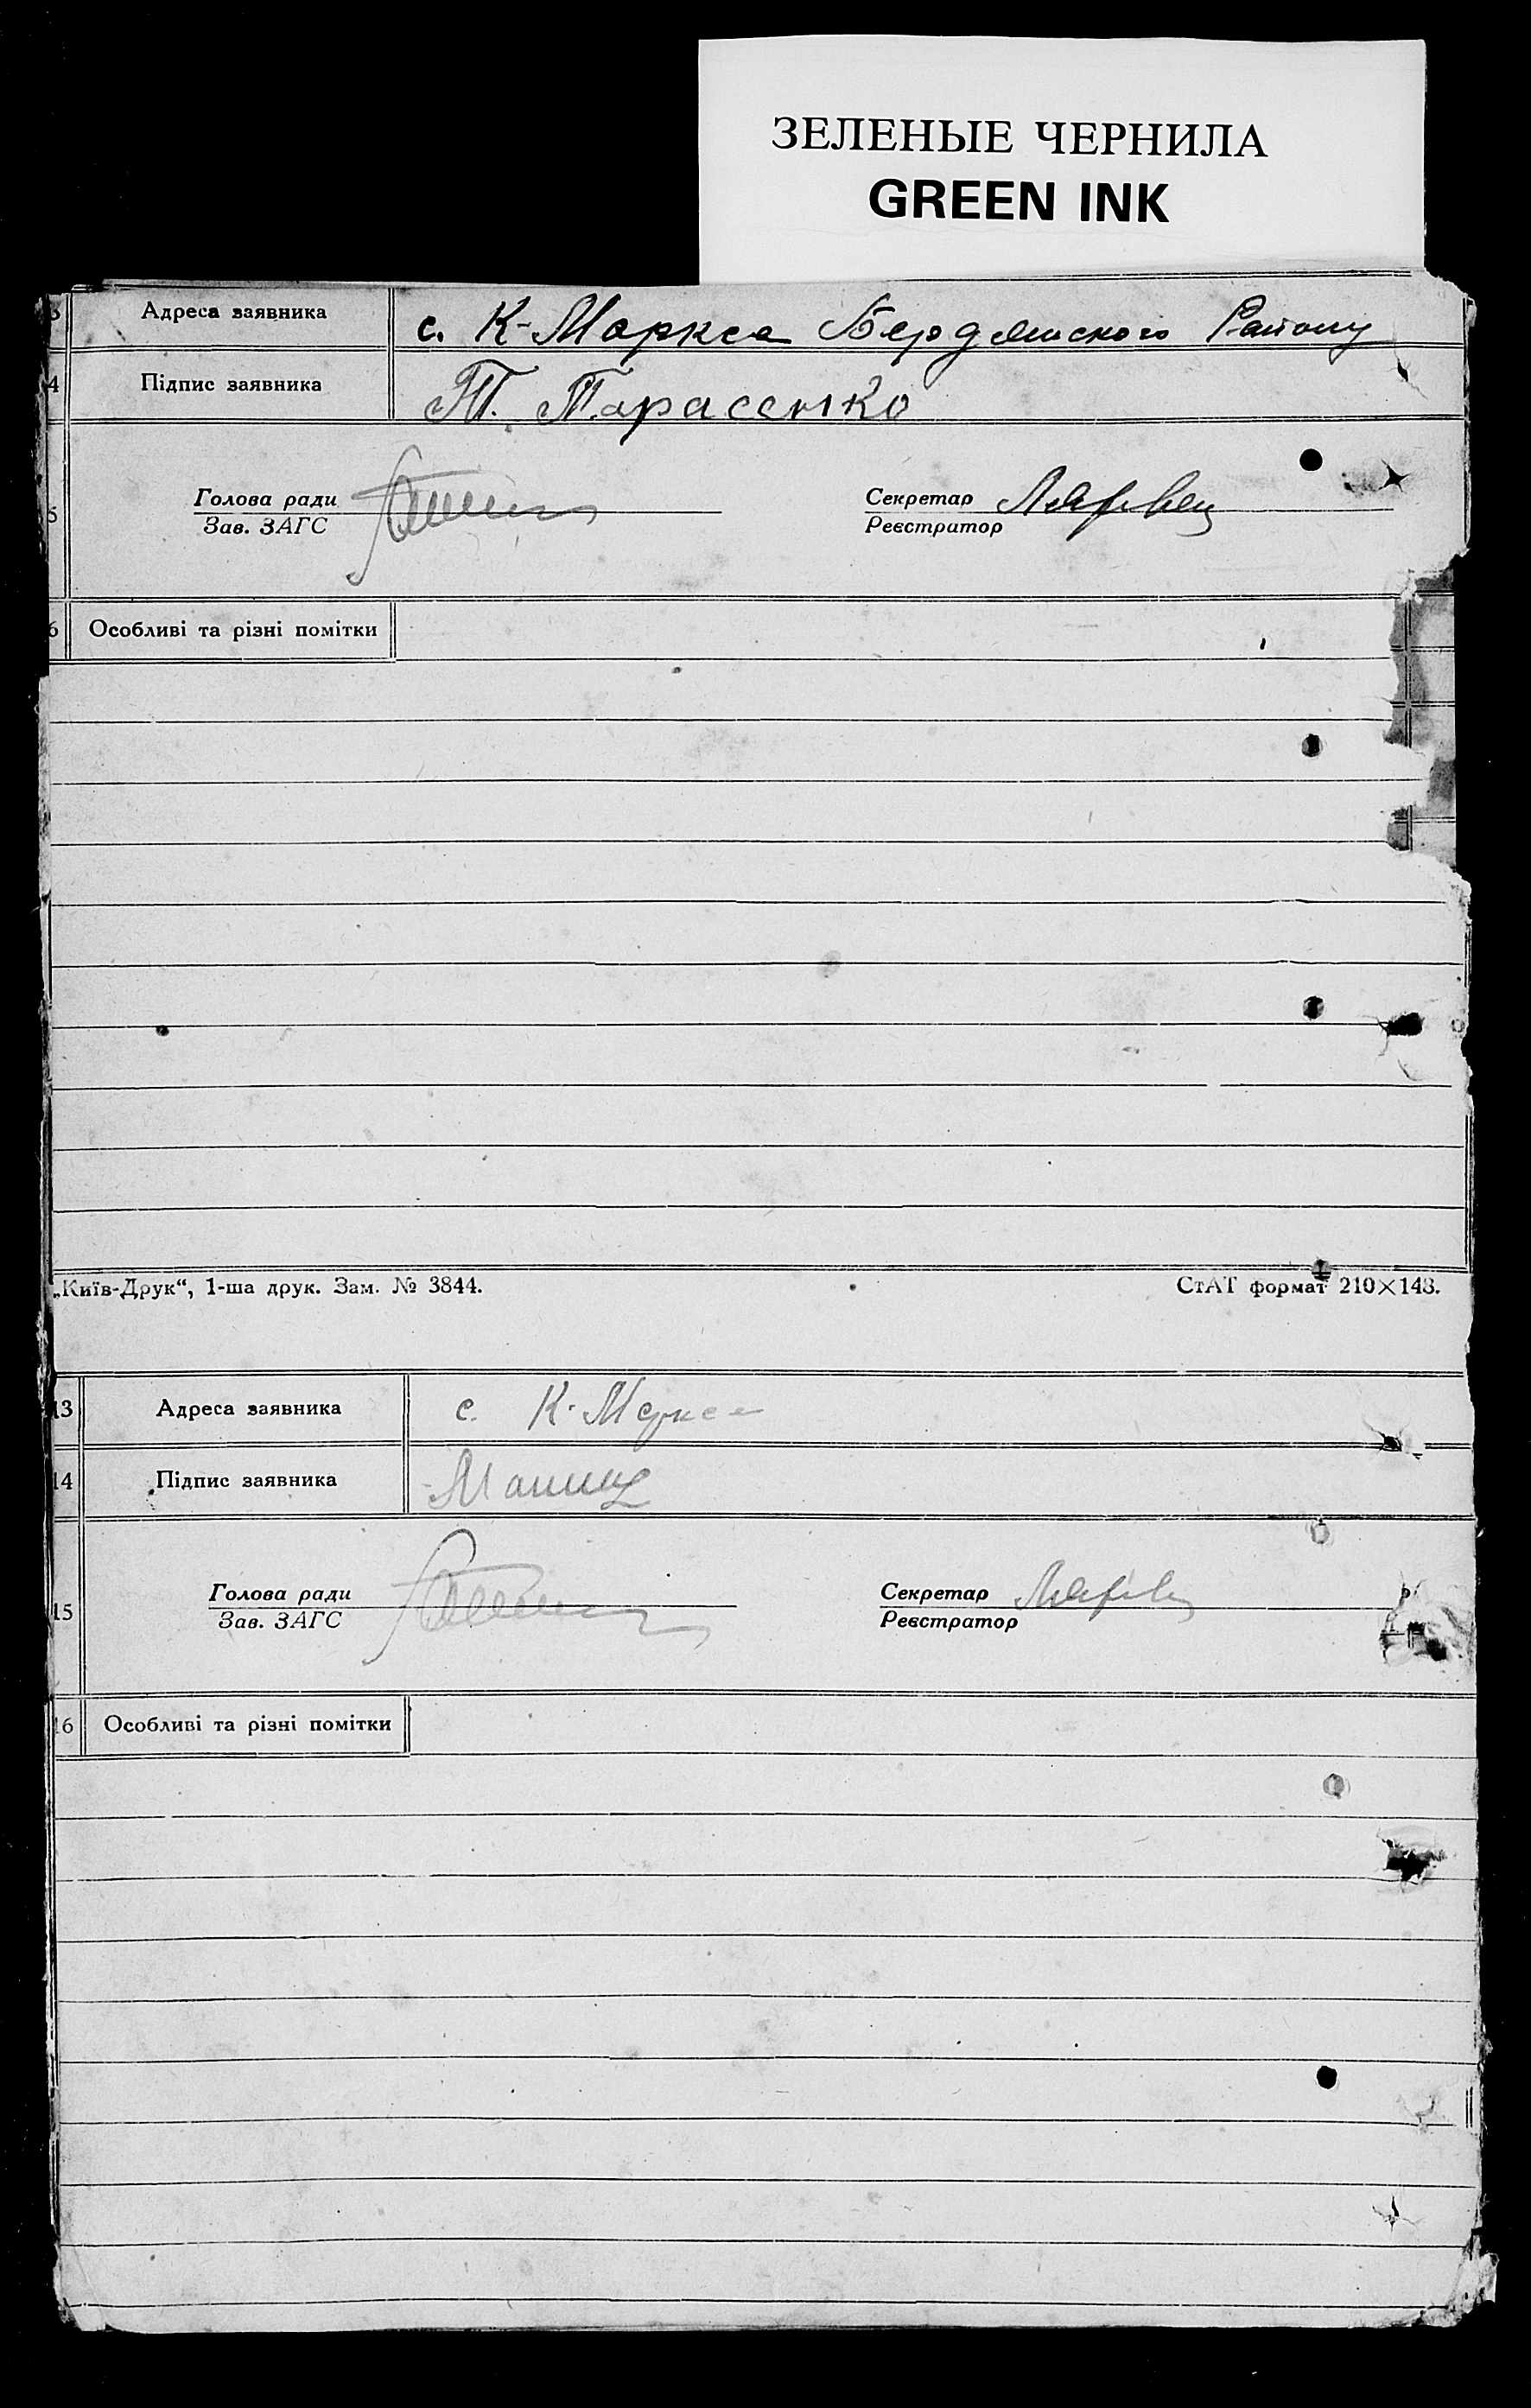 ЗЕЛЕНЫЕ ЧЕРНИЛА
GREEN INK
3 Адреса заявника с. К-Маркса Бердянського Району
4 Підпис заявника Т. Тарасенко
5 Голова ради Секретар
Зав. ЗАГС Реєстратор
6 Особливі та різні помітки
„Київ-Друк“, 1-ша друк. Зам. № 3844. СтАТ формат 210×148.
13 Адреса заявника с. К-Маркса
14 Підпис заявника
15 Голова ради Секретар
Зав. ЗАГС Реєстратор
16 Особливі та різні помітки